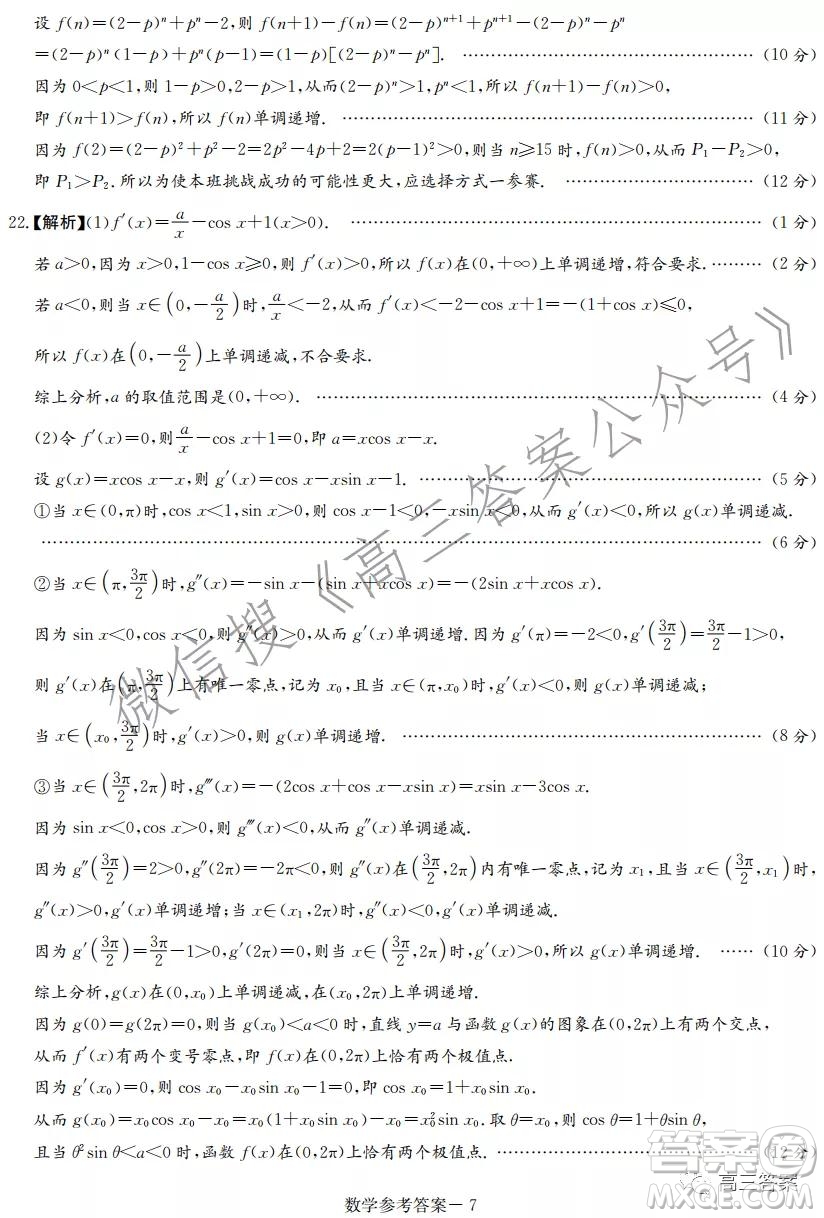 设 f(n)=(2-p)ⁿ+pⁿ-2,则 f(n+1)-f(n)=(2-p)ⁿ⁺¹+pⁿ⁺¹-(2-p)ⁿ-pⁿ
=(2-p)ⁿ(1-p)+pⁿ(p-1)=(1-p)[(2-p)ⁿ-pⁿ]. ……………………………… (10 分)
因为 0<p<1,则 1-p>0,2-p>1,从而(2-p)ⁿ>1,pⁿ<1,所以 f(n+1)-f(n)>0,
即 f(n+1)>f(n),所以 f(n)单调递增. ……………………………… (11 分)
因为 f(2)=(2-p)²+p²-2=2p²-4p+2=2(p-1)²>0,则当 n≥15 时,f(n)>0,从而 P₁-P₂>0,
即 P₁>P₂.所以为使本班挑战成功的可能性更大,应选择方式一参赛. ……………… (12 分)
22.【解析】(1)f′(x)=a/x-cos x+1(x>0). ……………………………… (1 分)
若 a>0,因为 x>0,1-cos x≥0,则 f′(x)>0,所以 f(x)在(0,+∞)上单调递增,符合要求.……… (2 分)
若 a<0,则当 x∈(0,-a/2)时,a/x<-2,从而 f′(x)<-2-cos x+1=-(1+cos x)≤0,
所以 f(x)在(0,-a/2)上单调递减,不合要求.
综上分析,a 的取值范围是(0,+∞). ……………………………… (4 分)
(2)令 f′(x)=0,则a/x-cos x+1=0,即 a=xcos x-x.
设 g(x)=xcos x-x,则 g′(x)=cos x-xsin x-1. ……………………………… (5 分)
①当 x∈(0,π)时,cos x<1,sin x>0,则 cos x-1<0,-xsin x<0,从而 g′(x)<0,所以 g(x)单调递减.
……………………………… (6 分)
②当 x∈(π,3π/2)时,g″(x)=-sin x-(sin x+xcos x)=-(2sin x+xcos x).
因为 sin x<0,cos x<0,则 g″(x)>0,从而 g′(x)单调递增.因为 g′(π)=-2<0,g′(3π/2)=3π/2-1>0,
则 g′(x)在(π,3π/2)上有唯一零点,记为 x₀,且当 x∈(π,x₀)时,g′(x)<0,则 g(x)单调递减;
当 x∈(x₀,3π/2)时,g′(x)>0,则 g(x)单调递增. ……………………………… (8 分)
③当 x∈(3π/2,2π)时,g‴(x)=-(2cos x+cos x-xsin x)=xsin x-3cos x.
因为 sin x<0,cos x>0,则 g‴(x)<0,从而 g″(x)单调递减.
因为 g″(3π/2)=2>0,g″(2π)=-2π<0,则 g″(x)在(3π/2,2π)内有唯一零点,记为 x₁,且当 x∈(3π/2,x₁)时,
g″(x)>0,g′(x)单调递增;当 x∈(x₁,2π)时,g″(x)<0,g′(x)单调递减.
因为 g′(3π/2)=3π/2-1>0,g′(2π)=0,则当 x∈(3π/2,2π)时,g′(x)>0,所以 g(x)单调递增. …… (10 分)
综上分析,g(x)在(0,x₀)上单调递减,在(x₀,2π)上单调递增.
因为 g(0)=g(2π)=0,则当 g(x₀)<a<0 时,直线 y=a 与函数 g(x)的图象在(0,2π)上有两个交点,
从而 f′(x)有两个变号零点,即 f(x)在(0,2π)上恰有两个极值点.
因为 g′(x₀)=0,则 cos x₀-x₀sin x₀-1=0,即 cos x₀=1+x₀sin x₀.
从而 g(x₀)=x₀cos x₀-x₀=x₀(1+x₀sin x₀)-x₀=x₀²sin x₀.取 θ=x₀,则 cos θ=1+θsin θ,
且当 θ²sin θ<a<0 时,函数 f(x)在(0,2π)上恰有两个极值点. ……………………………… (12 分)
数学参考答案－7
微信搜《高三答案公众号》
高三答案
答案圈
MXQE.COM